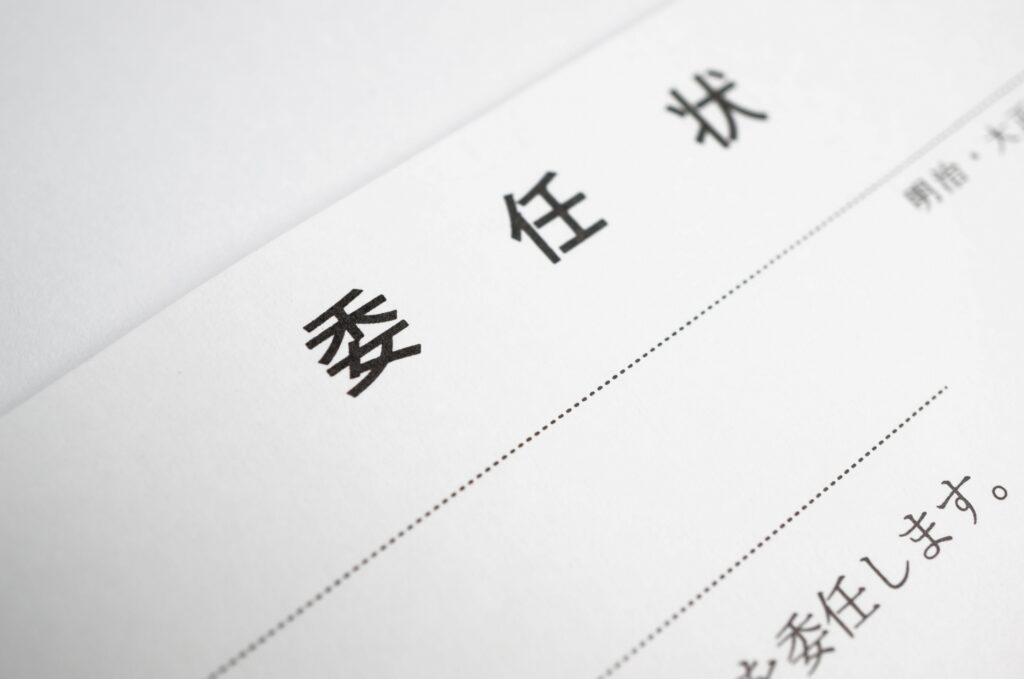 委任状
明治・大正
を委任します。